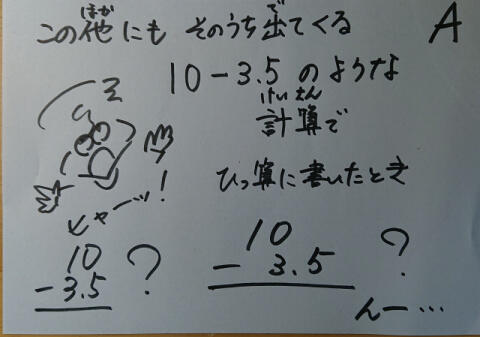 この他にも そのうち出てくる A
ほか で
10-3.5 のような
計算で
けいさん
ひっ算に書いたとき
ヒャーッ!
10
-3.5
?
10
- 3.5
?
んー…